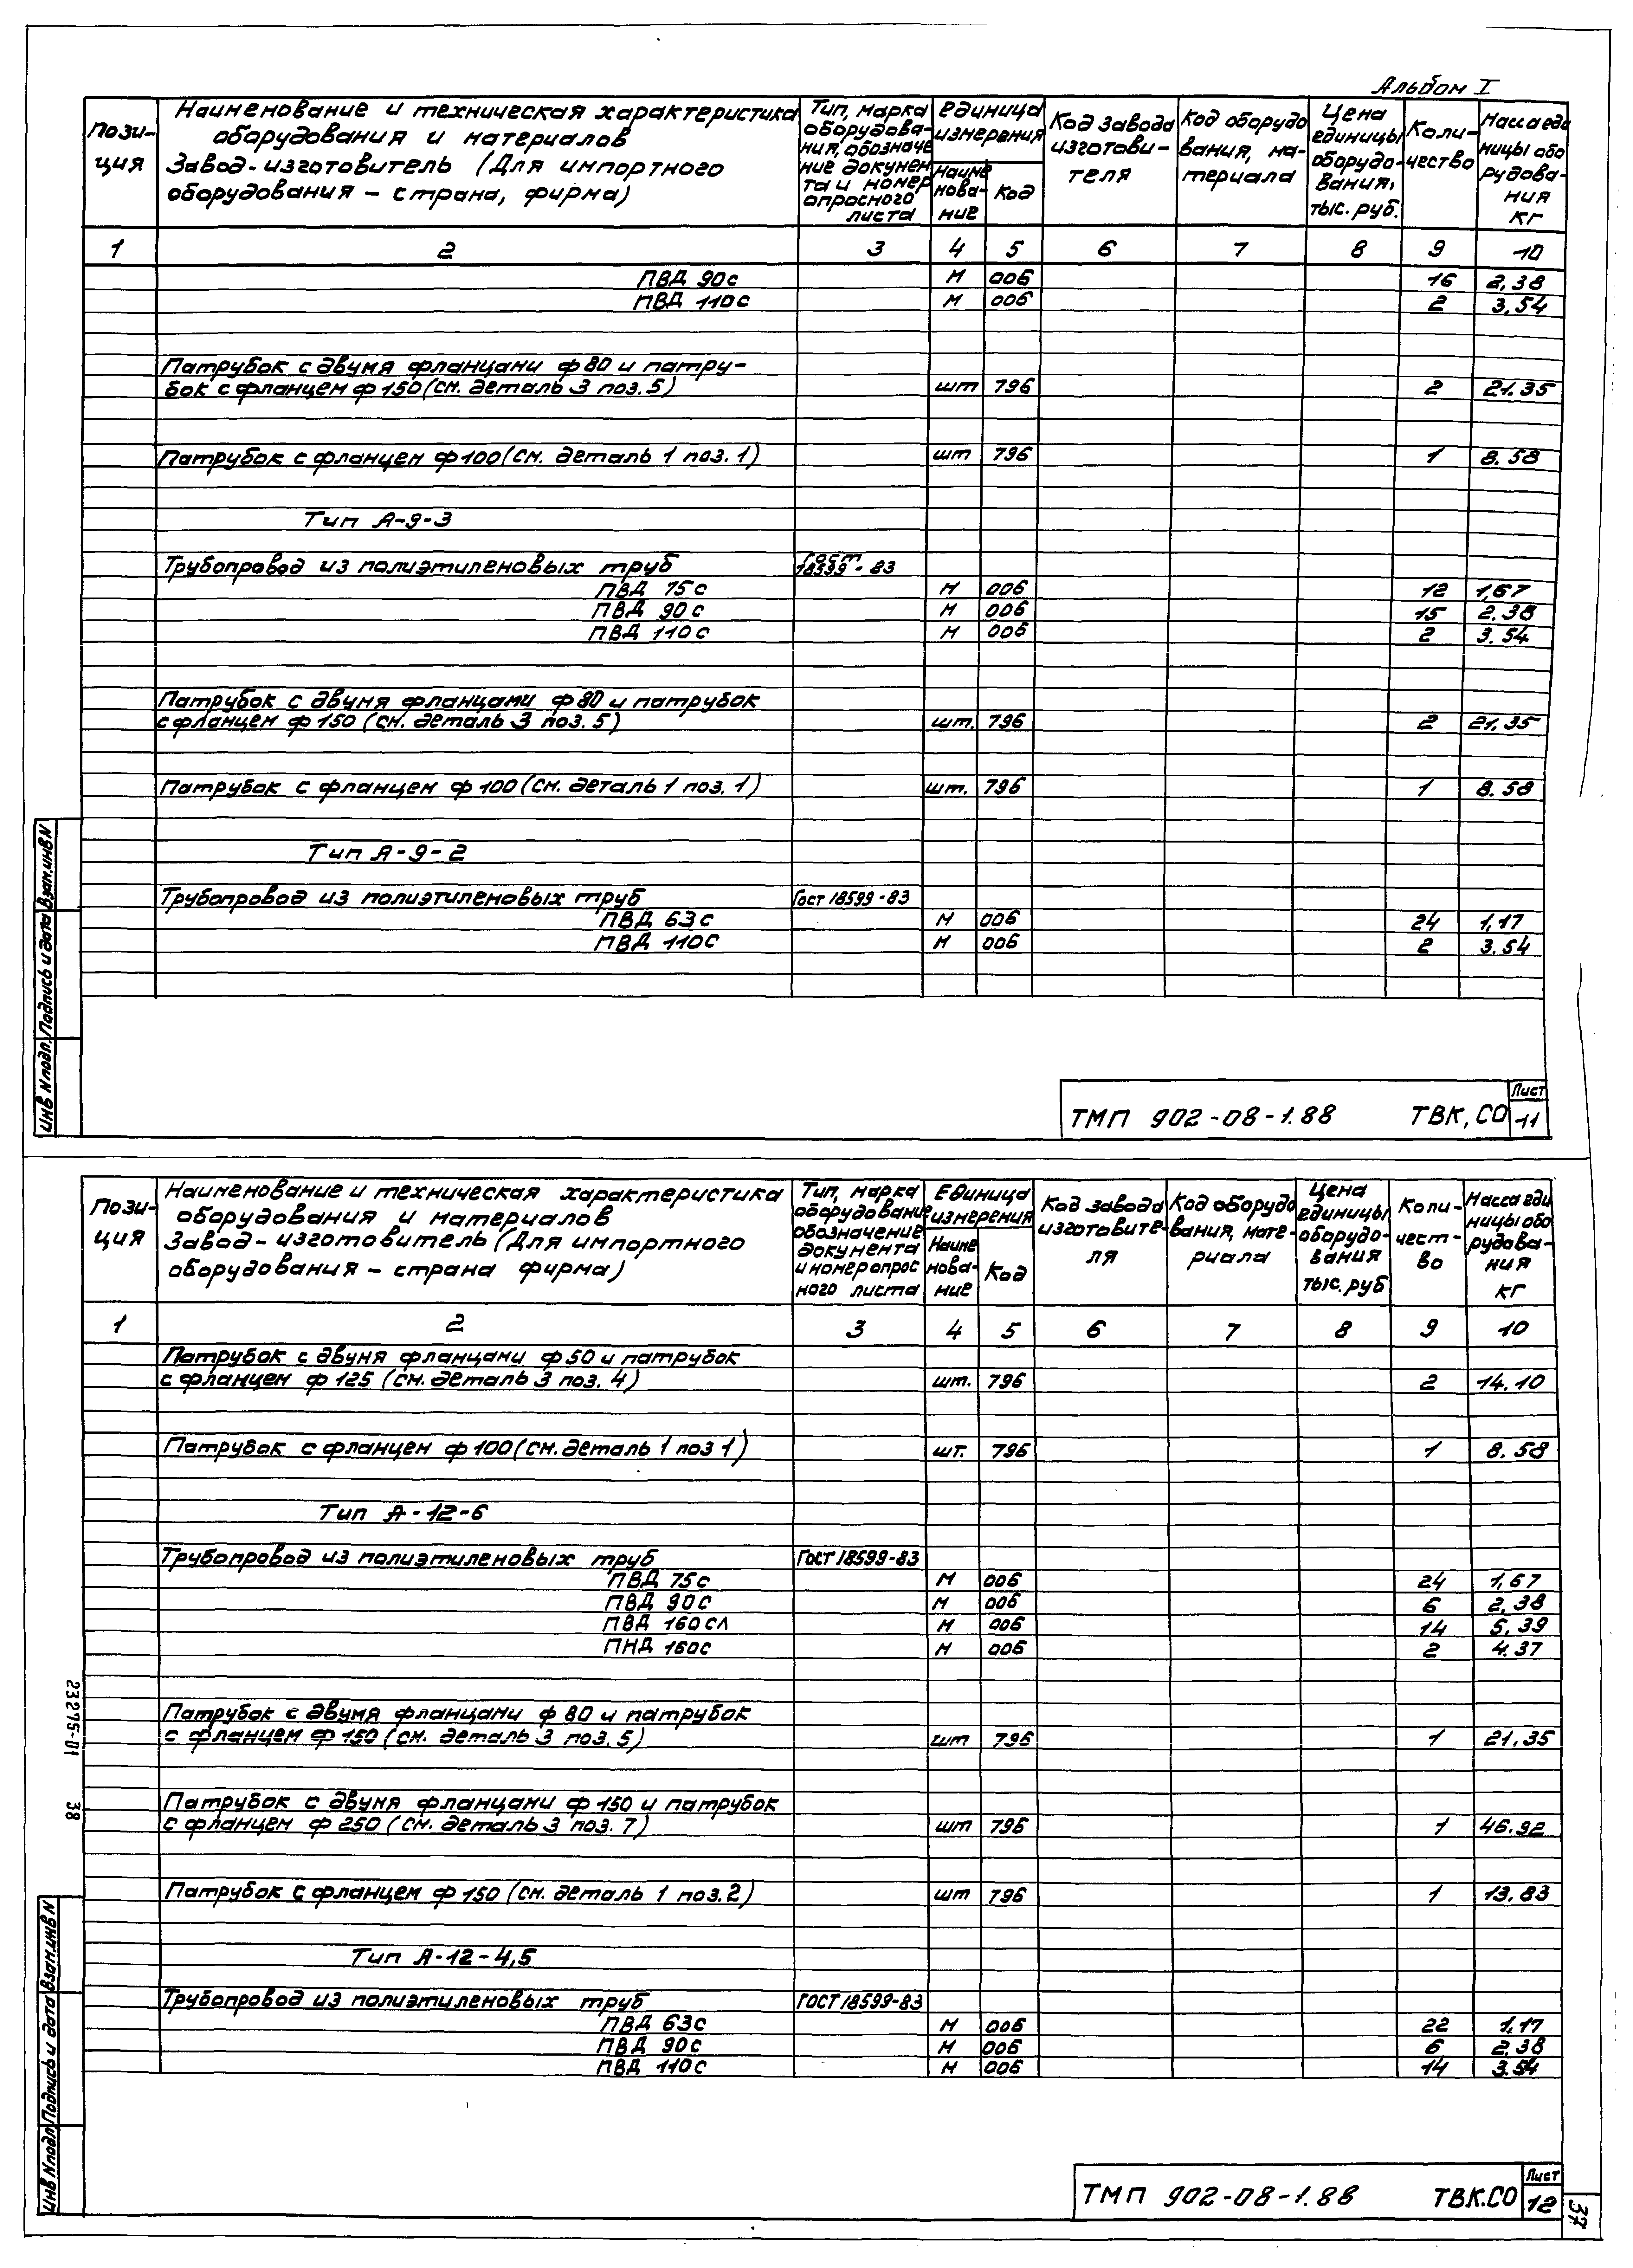 Альбом I
Пози-
ция
Наименование и техническая характеристика
оборудования и материалов
Завод-изготовитель (Для импортного
оборудования - страна, фирма)
Тип, марка
оборудова-
ния, обозначе
ние докумен
та и номер
опросного
листа
единица
измерения
Наиме
нова-
ние
Код
Код завода
изготови-
теля
Код оборудо
вания, ма-
териала
Цена
единицы
оборудо-
вания,
тыс. руб.
Коли-
чество
Масса еди
ницы обо
рудова-
ния
кг
1 2 3 4 5 6 7 8 9 10
ПВД 90с м 006 16 2,38
ПВД 110с м 006 2 3.54
Патрубок с двумя фланцами ф 80 и патру-
бок с фланцем ф 150 (см. деталь 3 поз. 5) шт 796 2 21.35
Патрубок с фланцем ф 100 (см. деталь 1 поз. 1) шт 796 1 8.58
Тип А-9-3
Трубопровод из полиэтиленовых труб Гост 18599-83
ПВД 75с м 006 12 1,67
ПВД 90с м 006 15 2.38
ПВД 110с м 006 2 3.54
Патрубок с двумя фланцами ф 80 и патрубок
с фланцем ф 150 (см. деталь 3 поз. 5) шт. 796 2 21.35
Патрубок с фланцем ф 100 (см. деталь 1 поз. 1) шт. 796 1 8.58
Тип А-9-2
Трубопровод из полиэтиленовых труб Гост 18599-83
ПВД 63с м 006 24 1,17
ПВД 110с м 006 2 3.54
Инв N подл. Подпись и дата Взам. инв N
ТМП 902-08-1.88 ТВК, СО
Лист
11
Пози-
ция
Наименование и техническая характеристика
оборудования и материалов
Завод-изготовитель (Для импортного
оборудования - страна фирма)
Тип, марка
оборудование
обозначение
документа
и номер опрос
ного листа
Единица
измерения
Наиме
нова-
ние
Код
Код завода
изготовите-
ля
Код оборудо
вания, мате-
риала
Цена
единицы
оборудо-
вания
тыс. руб
Коли-
чест-
во
Масса еди
ницы обо
рудова-
ния
кг
1 2 3 4 5 6 7 8 9 10
Патрубок с двумя фланцами ф 50 и патрубок
с фланцем ф 125 (см. деталь 3 поз. 4) шт. 796 2 14.10
Патрубок с фланцем ф 100 (см. деталь 1 поз 1) шт. 796 1 8.58
Тип А-12-6
Трубопровод из полиэтиленовых труб ГОСТ 18599-83
ПВД 75с м 006 24 1,67
ПВД 90с м 006 6 2,38
ПВД 160сл м 006 14 5,39
ПНД 160с м 006 2 4.37
Патрубок с двумя фланцами ф 80 и патрубок
с фланцем ф 150 (см. деталь 3 поз. 5) шт 796 1 21.35
Патрубок с двумя фланцами ф 150 и патрубок
с фланцем ф 250 (см. деталь 3 поз. 7) шт 796 1 46.92
Патрубок с фланцем ф 150 (см. деталь 1 поз. 2) шт 796 1 13.83
Тип А-12-4,5
Трубопровод из полиэтиленовых труб ГОСТ 18599-83
ПВД 63с м 006 22 1,17
ПВД 90с м 006 6 2.38
ПВД 110с м 006 14 3.54
23275-01 38
Инв N подл Подпись и дата Взам. инв N
ТМП 902-08-1.88 ТВК.СО
Лист
12
37